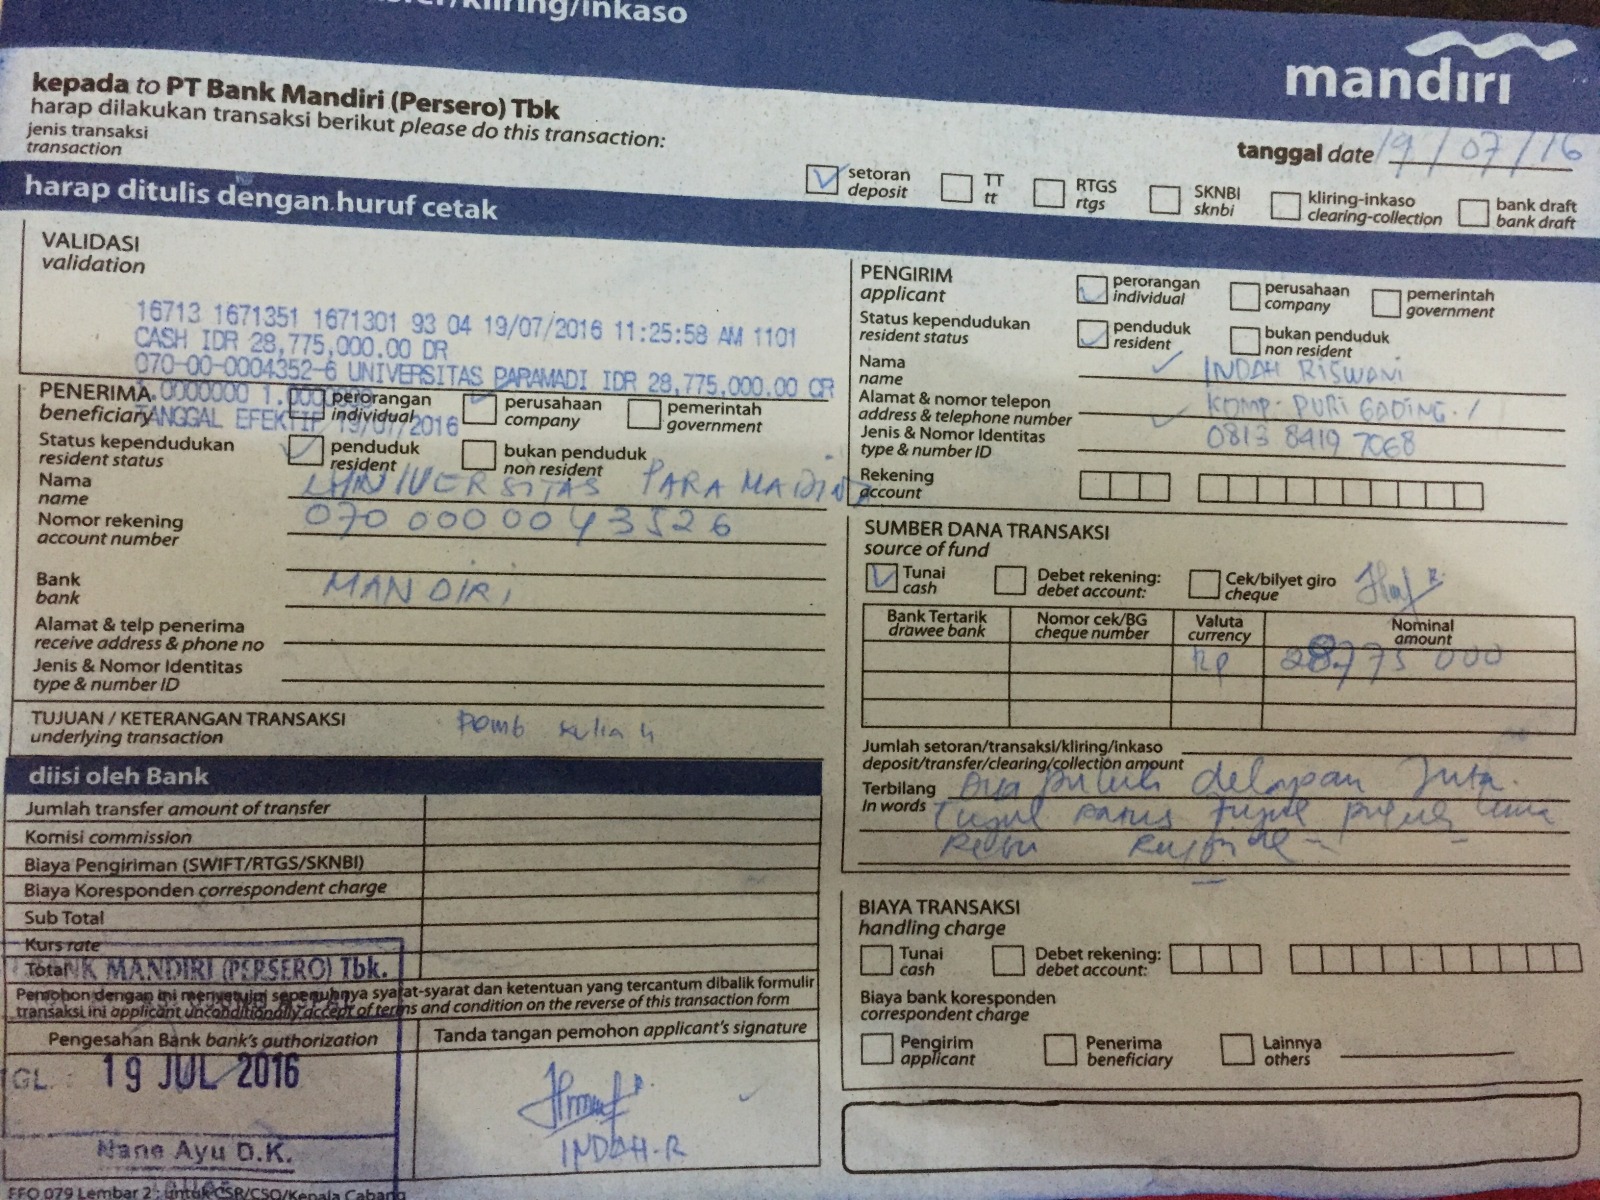 kliring/inkaso
mandırı
kepada to PT Bank Mandiri (Persero) Tbk
harap dilakukan transaksi berikut please do this transaction:
jenis transaksi
transaction
tanggal date 19/07/16
setoran
deposit
TT
tt
RTGS
rtgs
SKNBI
sknbi
kliring-inkaso
clearing-collection
bank draft
bank draft
harap ditulis dengan huruf cetak
VALIDASI
validation
16713 1671351 1671301 93 04 19/07/2016 11:25:58 AM 1101
CASH IDR 28,775,000.00 DR
070-00-0004352-6 UNIVERSITAS PARAMADI IDR 28,775,000.00 CR
TANGGAL EFEKTIF 19/07/2016
PENERIMA
beneficiary
perorangan
individual
perusahaan
company
pemerintah
government
Status kependudukan
resident status
penduduk
resident
bukan penduduk
non resident
Nama
name
UNIVERSITAS PARAMADINA
Nomor rekening
account number
0700000043526
Bank
bank
MANDIRI
Alamat & telp penerima
receive address & phone no
Jenis & Nomor Identitas
type & number ID
TUJUAN / KETERANGAN TRANSAKSI
underlying transaction
Pemb kuliah
diisi oleh Bank
Jumlah transfer amount of transfer
Komisi commission
Biaya Pengiriman (SWIFT/RTGS/SKNBI)
Biaya Koresponden correspondent charge
Sub Total
Kurs rate
Total
BANK MANDIRI (PERSERO) Tbk.
Pemohon dengan ini menyetujui sepenuhnya syarat-syarat dan ketentuan yang tercantum dibalik formulir
transaksi ini applicant unconditionally accept of terms and condition on the reverse of this transaction form
Pengesahan Bank bank's authorization
Tanda tangan pemohon applicant's signature
GL. 19 JUL 2016
INDAH.R
Nane Ayu D.K.
FFO 079 Lembar 2 : untuk CSR/CSO/Kepala Cabang
PENGIRIM
applicant
perorangan
individual
perusahaan
company
pemerintah
government
Status kependudukan
resident status
penduduk
resident
bukan penduduk
non resident
Nama
name
INDAH RISWANI
Alamat & nomor telepon
address & telephone number
KOMP. PURI GADING. /
Jenis & Nomor Identitas
type & number ID
0813 8419 7068
Rekening
account
SUMBER DANA TRANSAKSI
source of fund
Tunai
cash
Debet rekening:
debet account:
Cek/bilyet giro
cheque
Bank Tertarik
drawee bank
Nomor cek/BG
cheque number
Valuta
currency
Nominal
amount
Rp 28.775 000
Jumlah setoran/transaksi/kliring/inkaso
deposit/transfer/clearing/collection amount
Terbilang
In words
Dua puluh delapan Juta.
Tujuh ratus tujuh puluh lima
Ribu Rupiah
BIAYA TRANSAKSI
handling charge
Tunai
cash
Debet rekening:
debet account:
Biaya bank koresponden
correspondent charge
Pengirim
applicant
Penerima
beneficiary
Lainnya
others